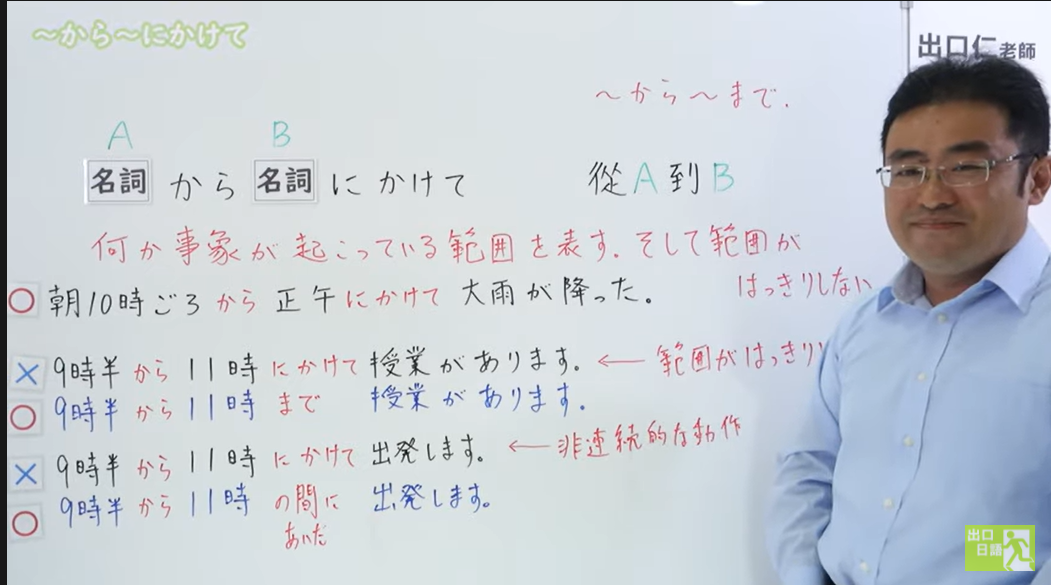 ~から~にかけて
出口仁老師
~から~まで.
A B
名詞から名詞にかけて 從A到B
何か事象が起こっている範囲を表す.そして範囲が
はっきりしない
○朝10時ごろから正午にかけて大雨が降った。
×9時半から11時にかけて授業があります。←範囲がはっきり
○9時半から11時まで授業があります.
×9時半から11時にかけて出発します。←非連続的な動作
○9時半から11時の間に出発します。
あいだ
出口
日語